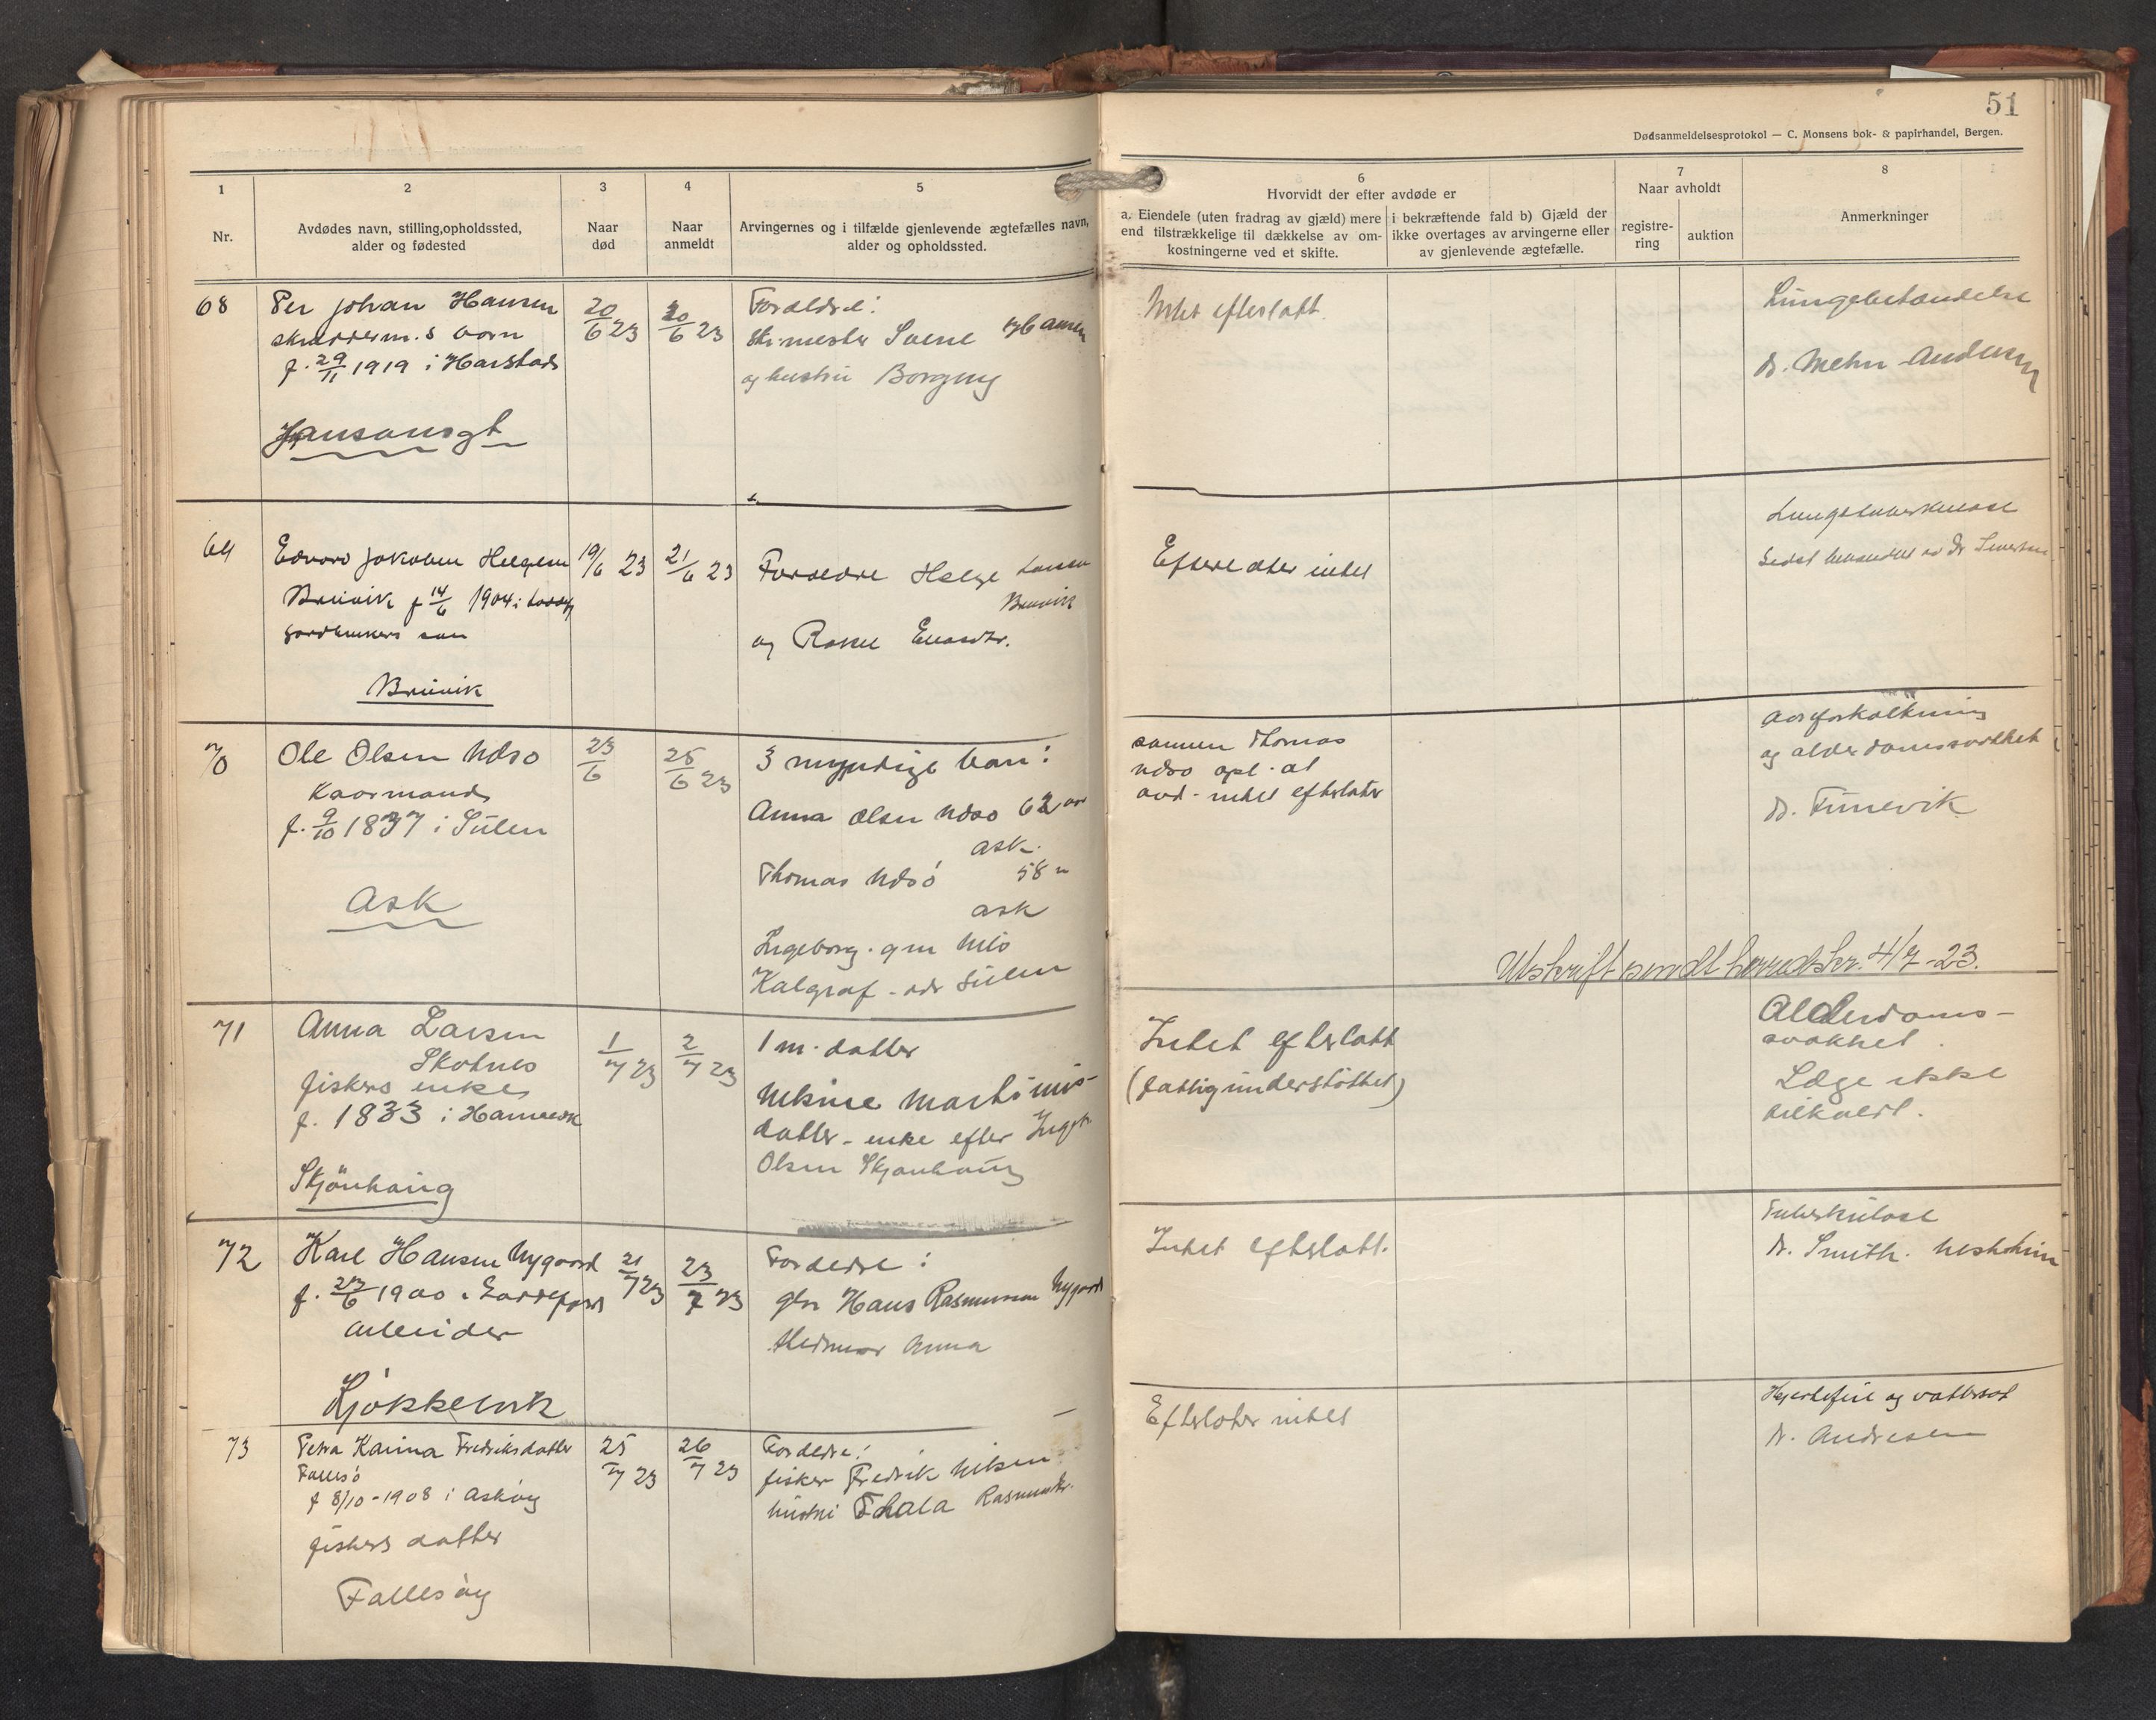 51
Dødsanmeldelsesprotokol — C. Monsens bok- & papirhandel, Bergen.
1
Nr.
2
Avdødes navn, stilling, opholdssted,
alder og fødested
3
Naar
død
4
Naar
anmeldt
5
Arvingernes og i tilfælde gjenlevende ægtefælles navn,
alder og opholdssted.
6
Hvorvidt der efter avdøde er
a. Eiendele (uten fradrag av gjæld) mere
end tilstrækkelige til dækkelse av om-
kostningerne ved et skifte.
i bekræftende fald b) Gjæld der
ikke overtages av arvingerne eller
av gjenlevende ægtefælle.
7
Naar avholdt
registre-
ring
auktion
8
Anmerkninger
68
Per Johan Hansen
skredderm.s barn
f. 29/11 1919 i Harstad
Jansonsgt
20/6 23
20/6 23
Forældre:
Hansen
og hustru Borgny
Intet efterlatt
Lungebetændelse
Dr. Mehn Andersen
69
Edvard Jakobsen Helgesen
Bruvik f 14/6 1904 i
gardbrukers søn
Bruvik
19/6 23
21/6 23
Foreldre Helge Larsen
Bruvik
og Rakel
Efterlater intet
Lungetuberkulose
Sidst behandlet av Dr
70
Ole Olsen Udsø
Kaarmand
f. 9/10 1837 i Sulen
Ask
23/6
25/6 23
3 myndige barn:
Anna Olsen Udsø 62 aar
Ask.
Thomas Udsø 58 "
Ask
Ingeborg. gm Nils
Kalgraf - adr Sulen
sønnen Thomas
Udsø opl. at
avd. intet efterlater
Aareforkalkning
og alderdomssvakhet
Dr. Tunevik
Utskrift sendt herredskr. 4/7-23.
71
Anna Larsen
Skotnes
fiskers enke
f. 1833 i Hamarvik
Skjönhaug
1/7 23
2/7 23
1 m. datter
Nekine Martinus-
datter - enke efter
Olsen Skjønhaug
Intet efterlatt
(fattigunderstöttet)
Alderdoms-
svakhet.
Læge ikke
tilkaldt.
72
Karl Hansen Nygaard
f. 23/6 1900 i
arbeider
Kjøkkelvik
21/7 23
23/7 23
Foreldre:
gbr Hans Rasmussen Nygaard
Anna
Intet efterlatt.
Tuberkulose
Dr. Smith.
73
Petra Karina Fredriksdatter
Follesø
f 8/10-1908 i Askøy
fiskers datter
Follesøy
25/7 23
26/7 23
Foreldre:
fisker Fredrik Nilsen
hustru Thala Rasmusdtr.
Efterlater intet
Hjertefeil og vattersot
Dr. Andresen